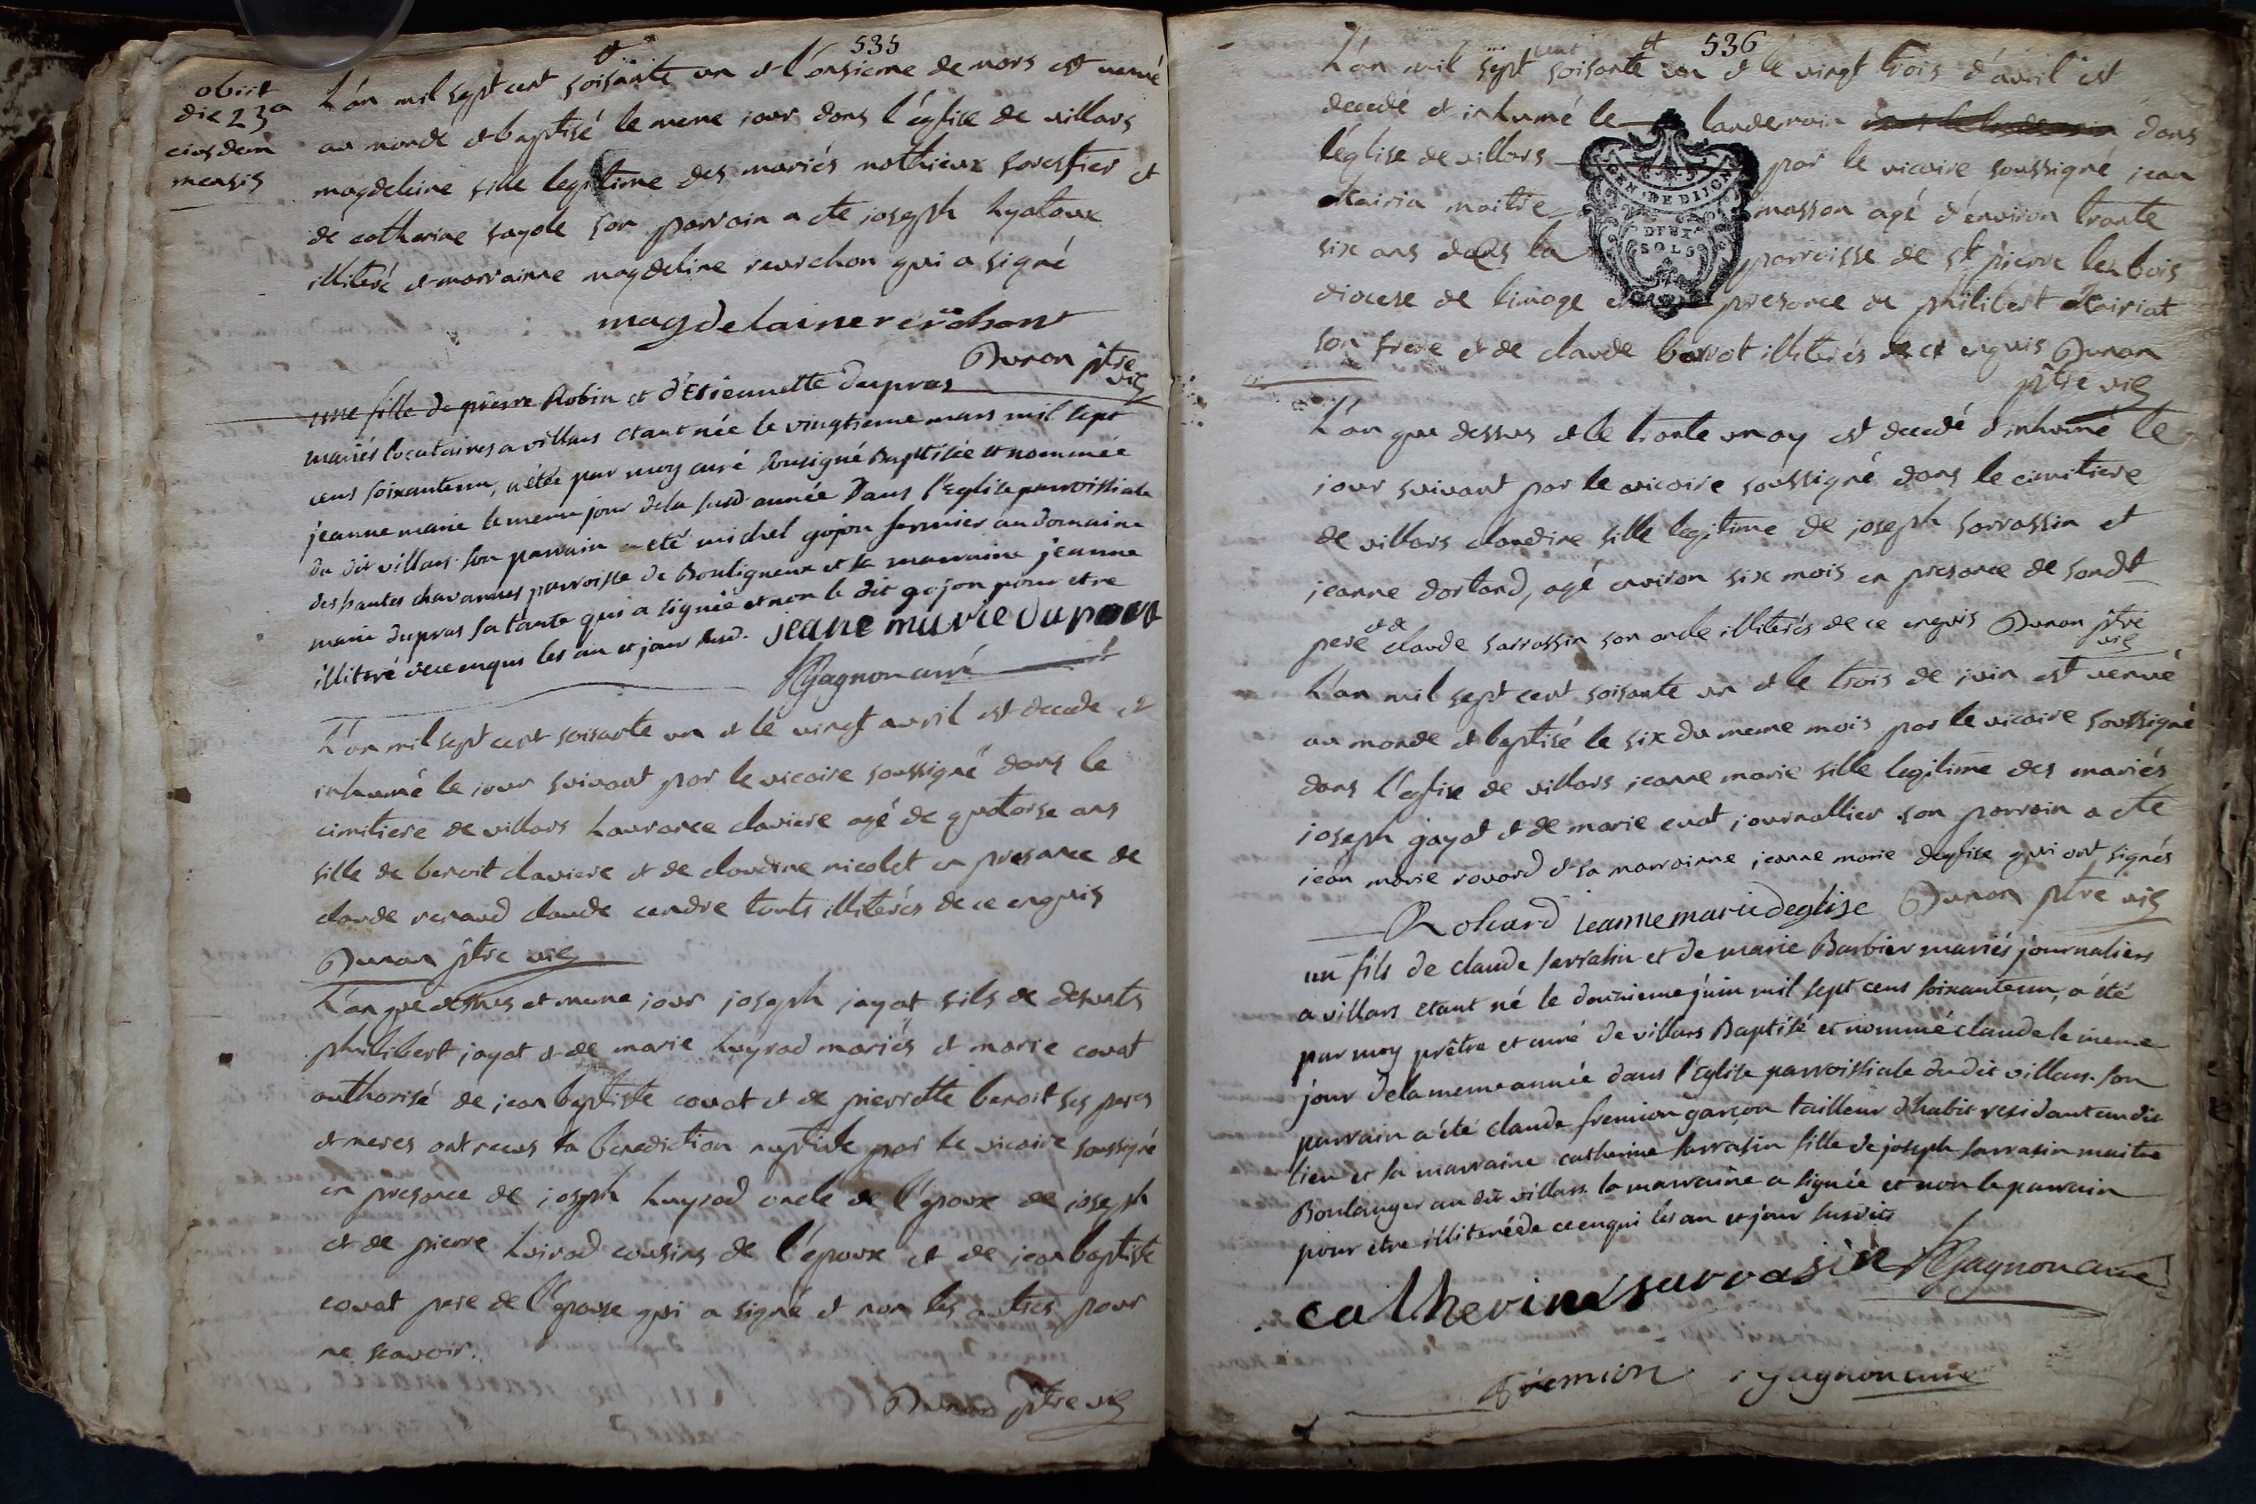 535
obiit
die 23a
eiusdem
mensis
L'an mil sept cent soisante un et l'onsieme de mars est venué
au monde et baptisé le meme jour dans l'église de villars
magdeleine fille legitime des mariés mathieux forestier et
de catherine fayole son parrain a été joseph hyatoux
illiteré et marrainne magdeline reurchon qui a signé
magdelaine rerchont
Dunan ptre vic
une fille de pierre Robin et d'Etiennette dupras
mariés locataires a villars etant née le vingtieme mars mil sept
cens soixanteun, a étée par moy curé sousigné Baptisée et nommée
jeanne marie le meme jour de la susd année dans l'Eglise parroissiale
du dit villars. son parrain a eté michel gojon fermier au domaine
des hautes chavannes parroisse de Bouligneux et sa marraine jeanne
marie dupras sa tante qui a signée et non le dit gojon pour etre
illiteré de ce enquis les an et jour susd. jeane marie dupras
Gagnon curé
L'an mil sept cent soisante un et le vingt avril est decede et
inhumé le jour suivant par le vicaire soussigné dans le
cimitiere de villars laurance claviere agé de quatorse ans
fille de benoit claviere et de claudine nicolet en presance de
claude renaud claude cendre touts illiterés de ce enquis
Dunan ptre vic
L'an que dessus et meme jour joseph jayat fils de defunts
philibert jayat et de marie huyrad mariés et marie covat
authorisé de jean baptiste covat et de pierrette benoit ses peres
et meres ont recus la benediction nuptiale par le vicaire soussigné
en presance de joseph huyrad oncle de l'époux de joseph
et de pierre huirad cousins de l'époux et de jean baptiste
covat pere de l'épouse qui a signé et non les autres pour
ne scavoir.
Dunan ptre vic
536
L'an mil sept cent soisante un et le vingt trois d'avril est
decedé et inhumé le landemain dans
l'église de villars par le vicaire soussigné jean
maitre masson agé d'environ trante
GEN. DE DIJON
DEUX
SOLS
six ans dans la parroisse de st pierre les bois
diocese de limoge en presance de philibert
son frere et de claude barrot illiterés de ce enquis Dunan
ptre vic
L'an que dessus et le trante un est decedé et inhumé le
jour suivant par le vicaire soussigné dans le cimitiere
de villars claudine fille legitime de joseph sarrassin et
jeanne dortand, agé environ six mois en presance de sondt
pere et de claude sarrassin son oncle illiterés de ce enquis Dunan ptre
vic
L'an mil sept cent soisante un et le trois de juin est venué
au monde et baptisé le six du meme mois par le vicaire soussigné
dans l'église de villars jeanne marie fille legitime des mariés
joseph gayat et de marie cuat journallier son parrain a été
jean marie rovard et sa marrainne jeanne marie deglise qui ont signés
Rohard jeanne marie deglise Dunan ptre vic
un fils de claude sarrasin et de marie Barbier mariés journaliers
a villars etant né le douzieme juin mil sept cens soixanteun, a été
par moy prêtre et curé de villars Baptisé et nommé claude le meme
jour de la meme année dans l'Eglise parroissiale du dit villars. son
parrain a été claude fremion garçon tailleur d'habit residant au dit
lieu et sa marraine catherine sarrasin fille de joseph sarrasin maitre
Boulanger au dit villars. la marraine a signée et non le parrain
pour etre illiteré de ce enqui les an et jour susdits
catherine sarrasin Gagnon curé
fremion gagnon curé